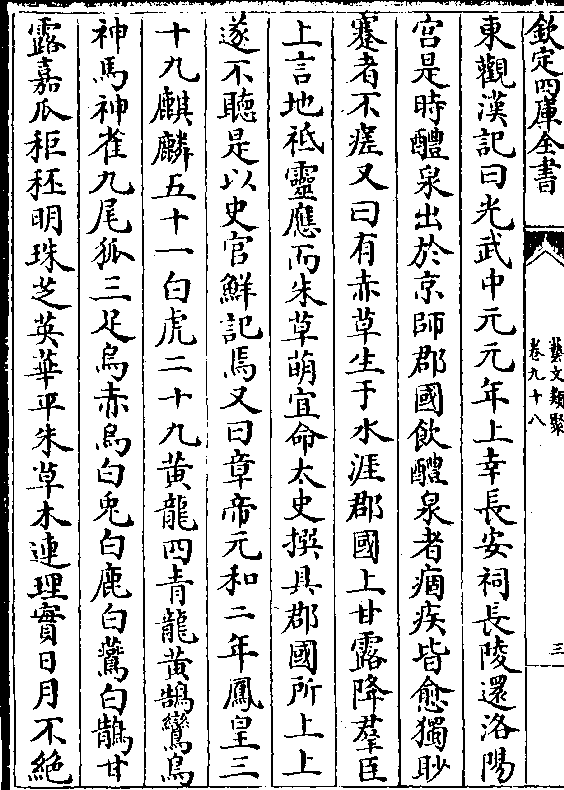 欽定四庫全書
藝文類聚
卷九十八
三
東觀漢記曰光武中元元年上幸長安祠長陵還洛陽
宫是時醴泉出於京師郡國飲醴泉者痼疾皆愈獨眇
蹇者不瘥又曰有赤草生于水涯郡國上甘露降羣臣
上言地祇靈應而朱草萌宜命太史撰具郡國所上上
遂不聽是以史官鮮記焉又曰章帝元和二年鳳皇三
十九麒麟五十一白虎二十九黄龍四青龍黄鵠鸞鳥
神馬神雀九尾狐三足烏赤烏白兎白鹿白鷰白鵲甘
露嘉瓜秬秠明珠芝英華平朱草木連理實日月不絶